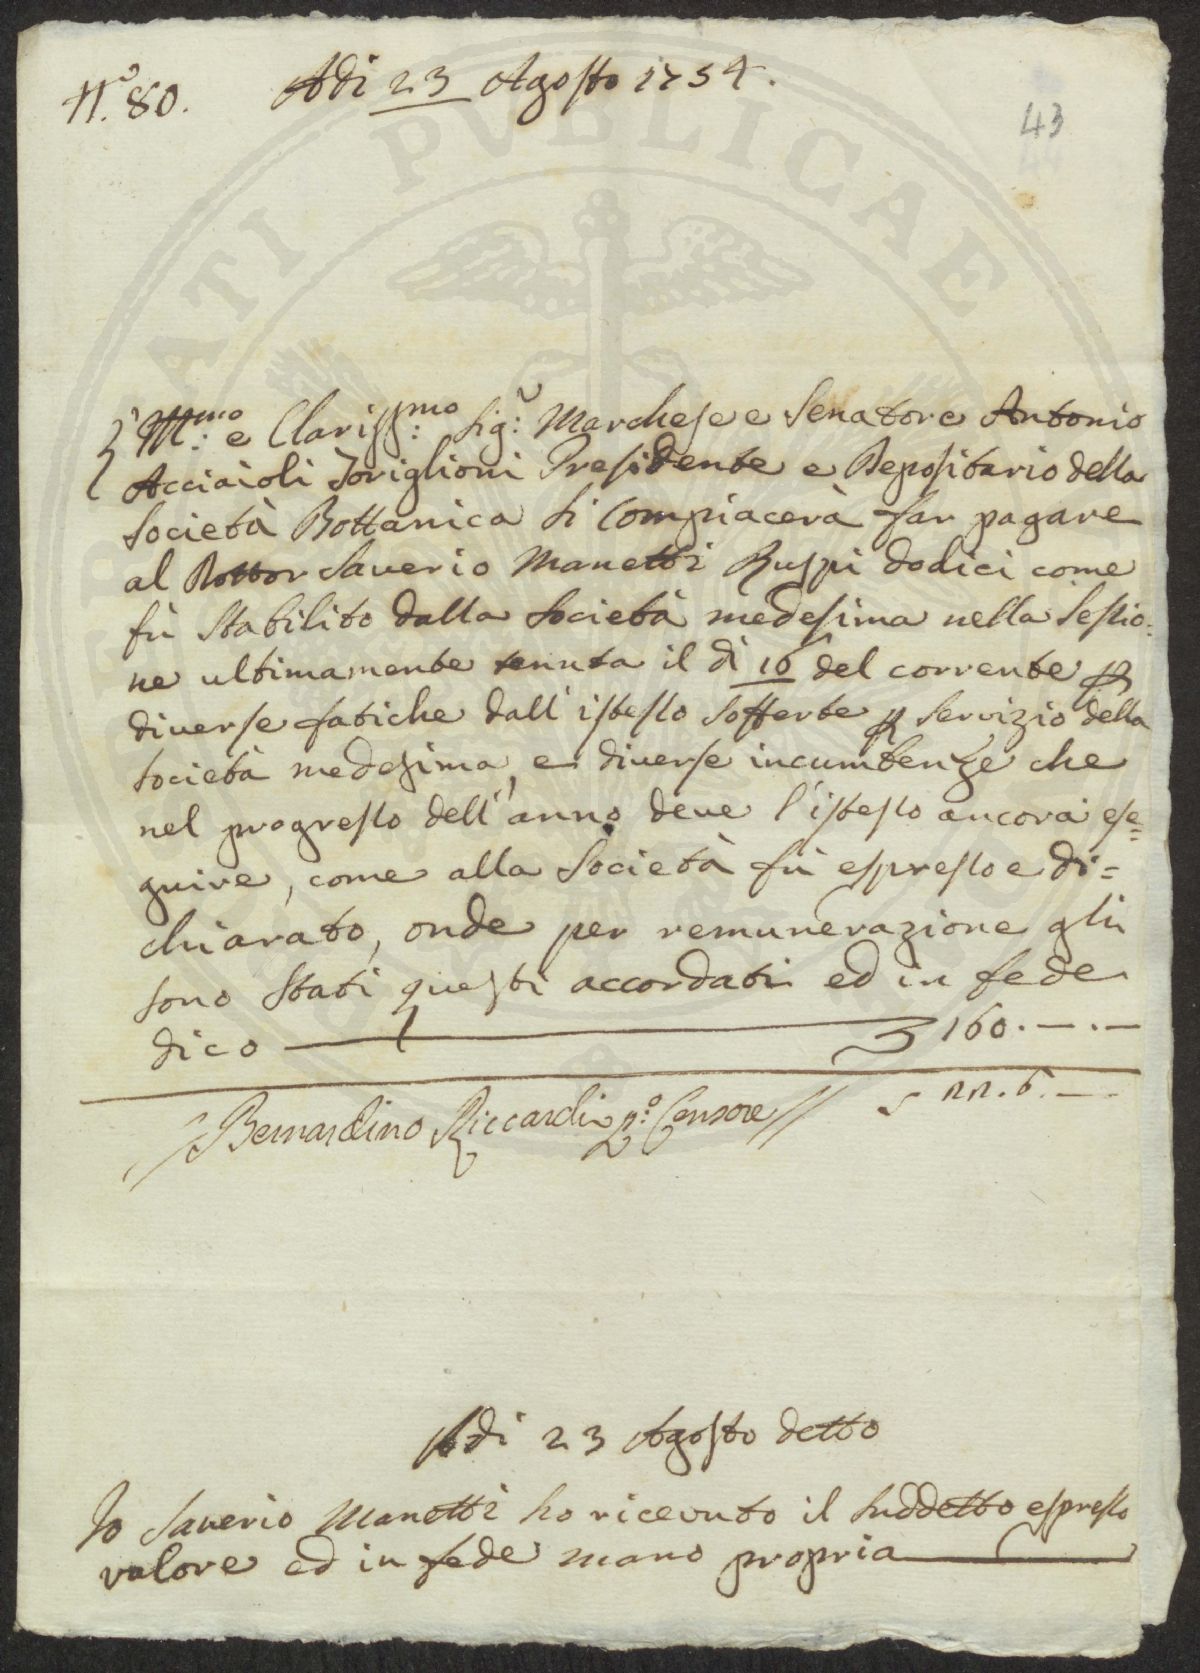 N.º 80. Adi 23 Agosto 1754.
43
Ill.mo e Clariss.mo Sig.r Marchese e Senatore Antonio
Acciaioli Toriglioni Presidente e Depositario della
Società Bottanica si compiacerà far pagare
al Dottor Saverio Manetti Ruspi dodici come
fù stabilito dalla Società medesima nella sessio=
ne ultimamente tenuta il dì 16 del corrente p
diverse fatiche dall' istesso sofferte p servizio della
società medesima, e diverse incumbenze che
nel progresso dell' anno deve l'istesso ancora ese=
guire, come alla Società fù espresso e di=
chiarato, onde per remunerazione gli
sono stati questi accordati ed in fede
dico 160.—.—
Bernardino Riccardi 2.º Censore
Adi 23 Agosto detto
Io Saverio Manetti ho ricevuto il suddetto espresso
valore ed in fede mano propria
PVBLICAE